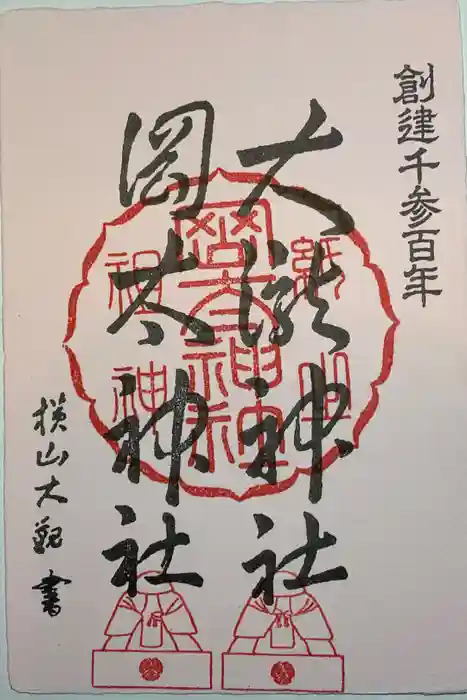 創建千参百年
大瀧神社
岡太神社
横山大観書
紙
祖神
岡太神社